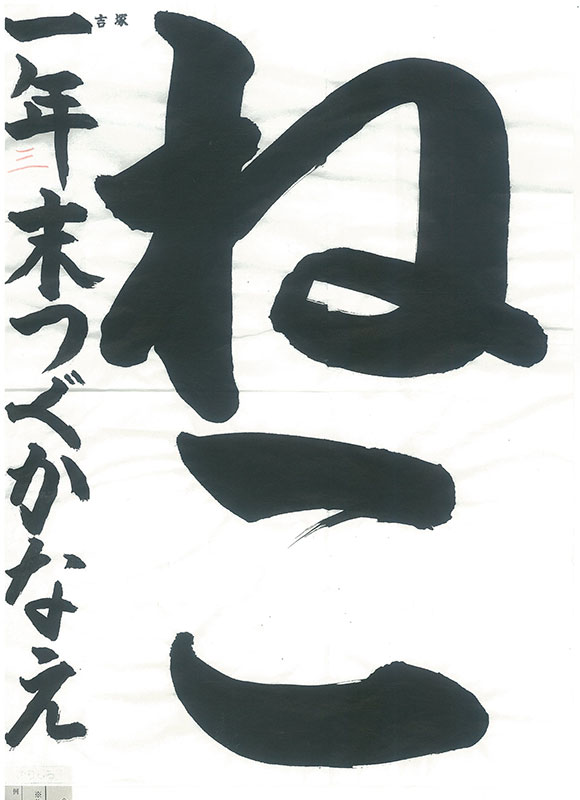 ねこ
吉塚
一年末つぐかなえ
三